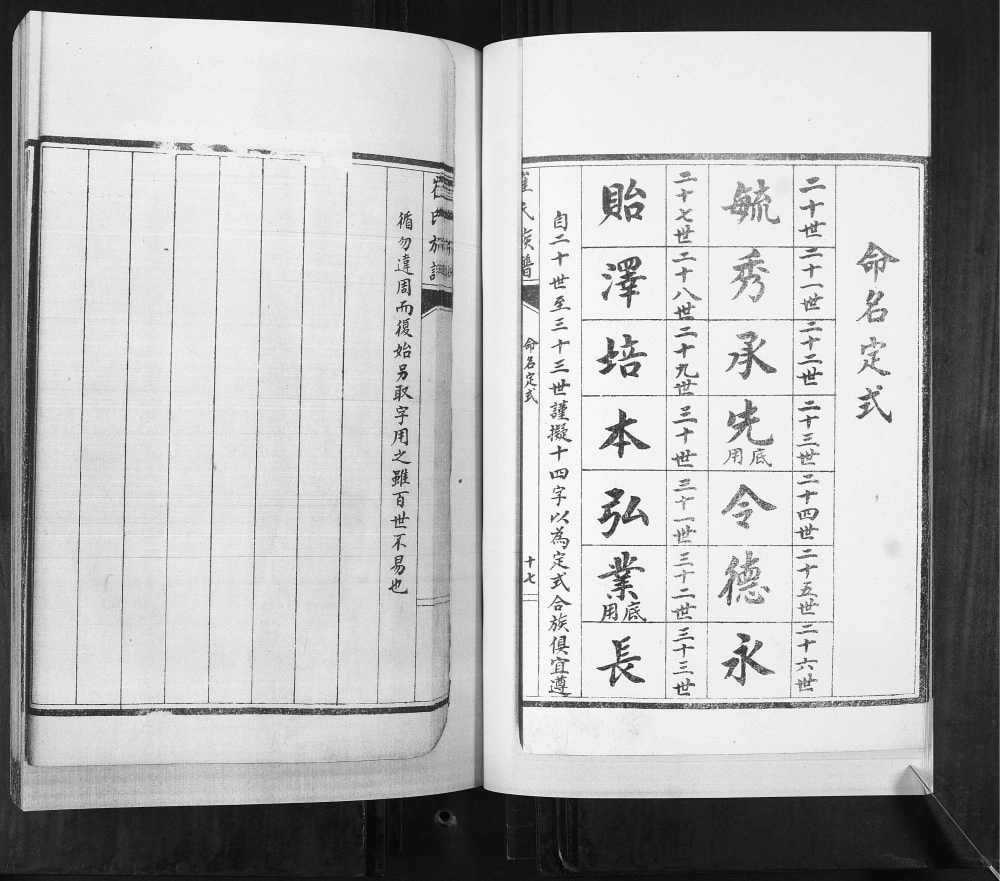 命名定式
二十世
二十一世
二十二世
二十三世
二十四世
二十五世
二十六世
毓
秀
承
先
底用
令
德
永
二十七世
二十八世
二十九世
三十世
三十一世
三十二世
三十三世
貽
澤
培
本
弘
業
底用
長
自二十世至三十三世謹擬十四字以為定式合族俱宜遵
崔氏族譜
命名定式
十七
崔氏族譜
循勿違周而復始另取字用之雖百世不易也